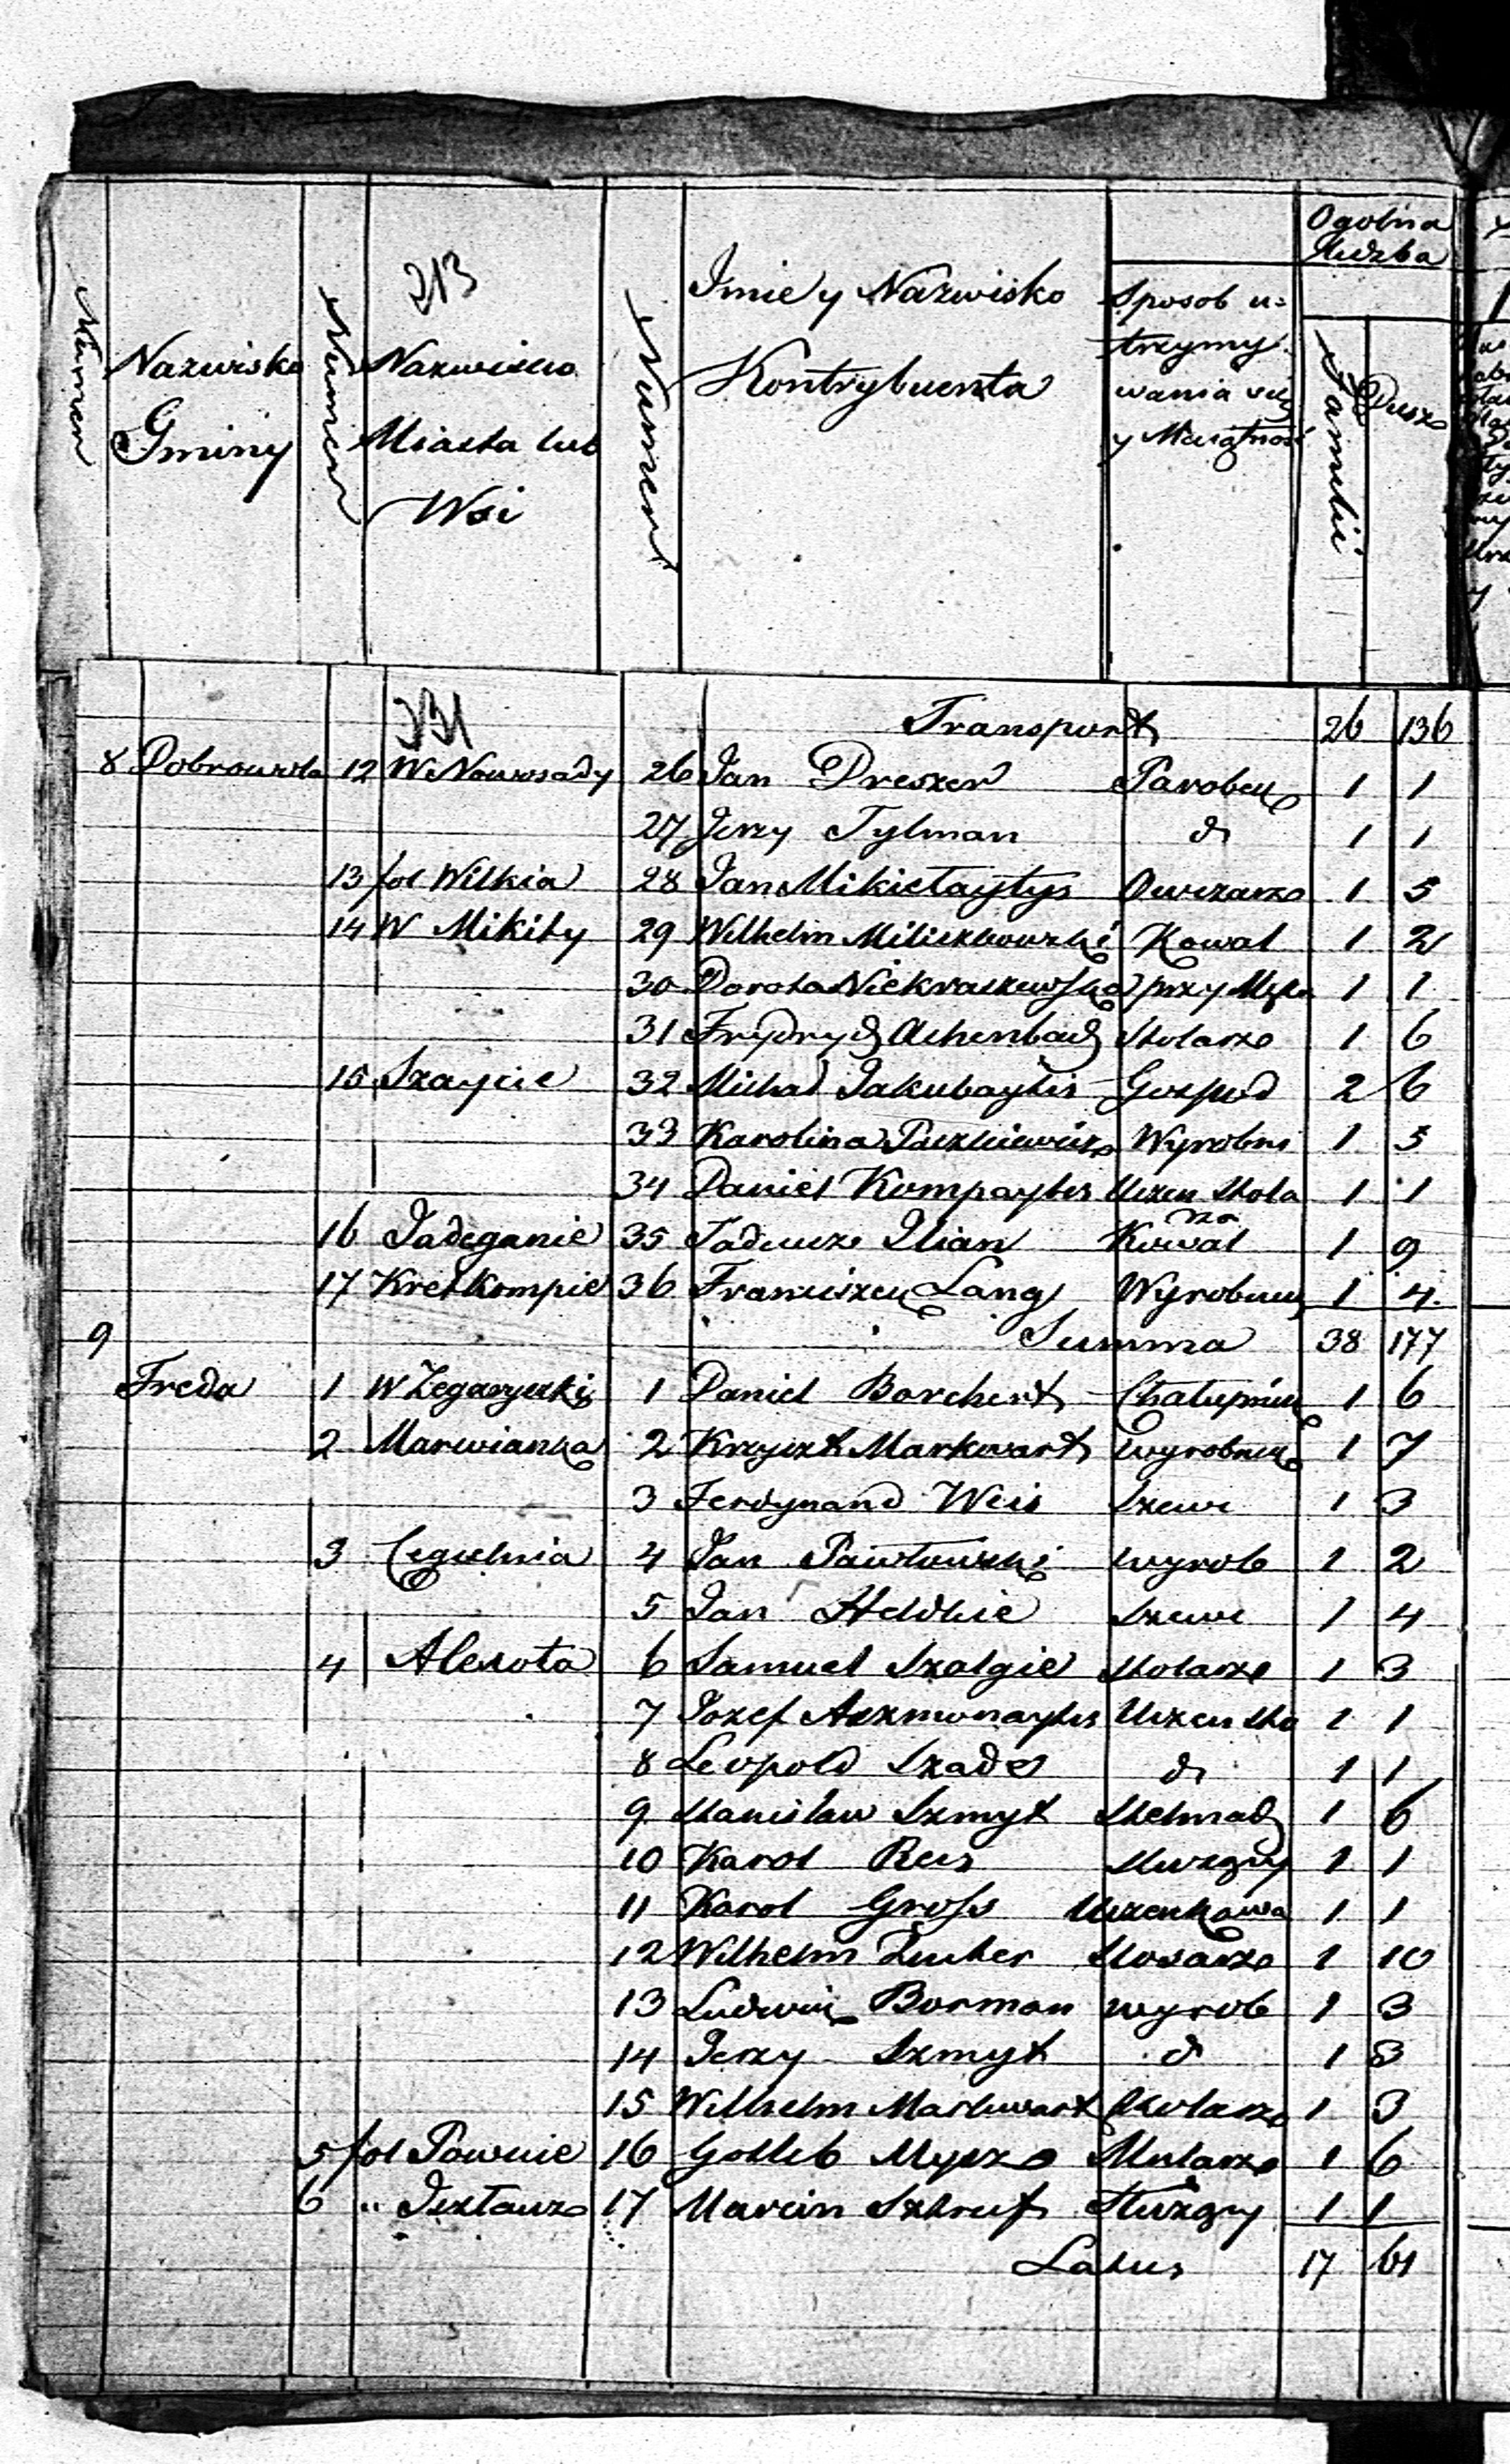 213
Ogolna
Liczba
Numer
Nazwisko
Gminy
Numer
Nazwisko
Miasta lub
Wsi
Numer
Imie y Nazwisko
Kontrybuenta
Sposob u=
trzymy
wania się
y Maiątność
Familii
Dusz
331
Transport 26 136
8 Dobrowola 12 W. Nowosady 26 Jan Dreszer Parobek 1 1
27 Jerzy Tylman do 1 1
13 fol Wilkia 28 Jan Mikietaytys Owczarz 1 5
14 W Mikity 29 Wilhelm Miliszkowski Kowal 1 2
30 Dorota Niekraszewska przy Mężu 1 1
31 Frydrych Achenbach Stolarz 1 6
15 Szaycie 32 Michał Jakubaytis Gospod 2 6
33 Karolina Paszkiewicz Wyrobni 1 5
34 Daniel Kompaytis Uczen Stola 1 1
rza
16 Jadeganie 35 Tadeusz Ilian Kowal 1 9
17 Kretkompie 36 Franciszek Lang Wyrobnik 1 4
Summa 38 177
9
Freda 1 W Zegaryszki 1 Daniel Borchert Chałupnik 1 6
2 Marwianka 2 Krzyszt Markwart wyrobnik 1 7
3 Ferdynand Weis Szewc 1 3
3 Cegielnia 4 Jan Pawłowski wyrob 1 2
5 Jan Heldkie Szewc 1 4
4 Alexota 6 Samuel Szalgie Stolarz 1 3
7 Jozef Aszmonaytis Uczen Sto 1 1
8 Leopold Szades do 1 1
9 Stanisław Szmyt Stelmach 1 6
10 Karol Reis Służący 1 1
11 Karol Gross Uczen Kowa 1 1
12 Wilhelm Luther Slosarz 1 10
13 Ludwik Borman wyrob 1 3
14 Jerzy Szmyt do 1 3
15 Wilhelm Markwart Stolarz 1 3
5 fol Pownie 16 Gotlib Mysz Mularz 1 6
6 " Jesztaurz 17 Marcin Sztruf Służący 1 1
Latus 17 61